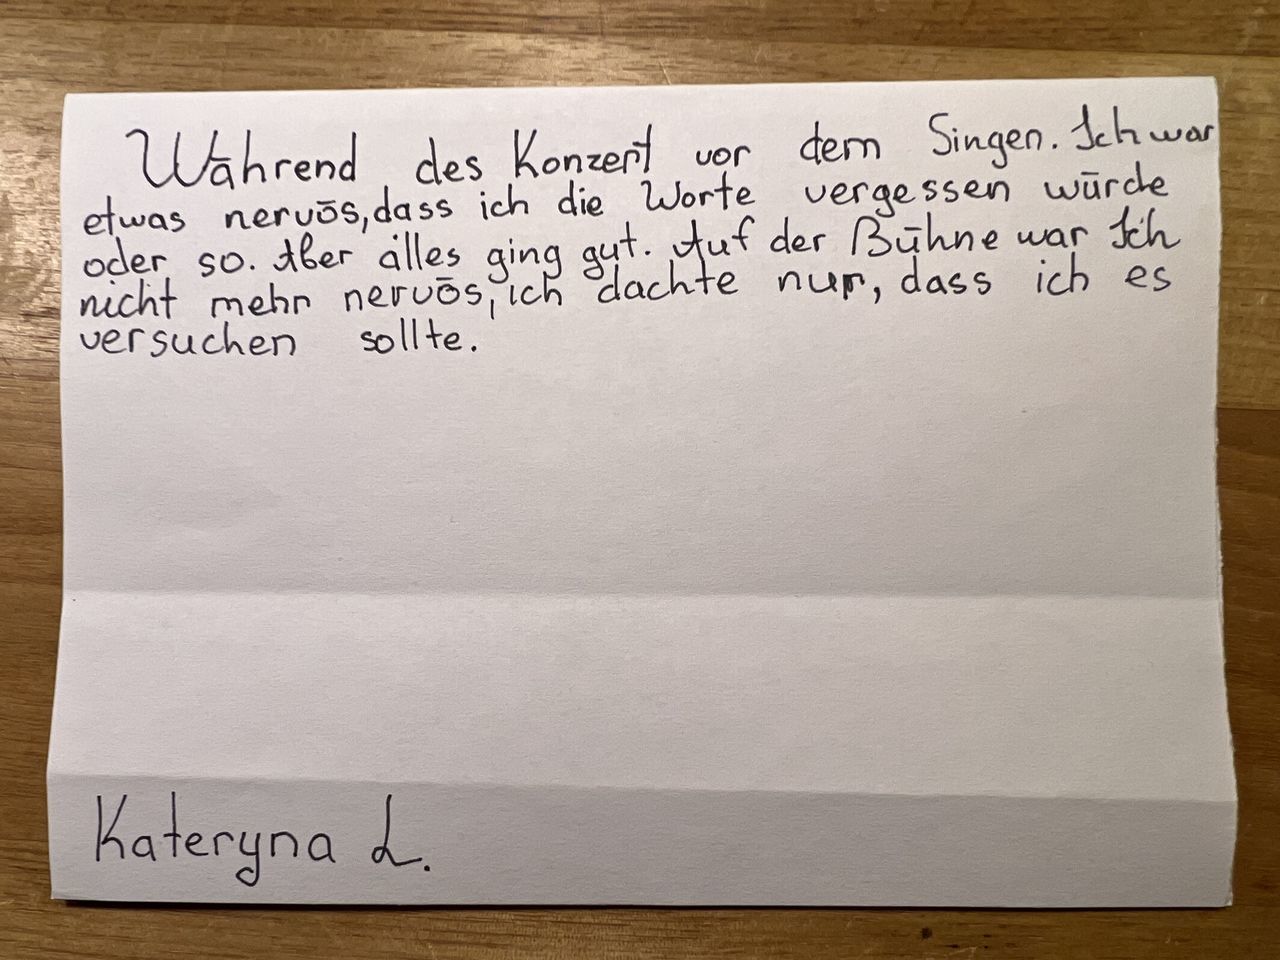 Während des Konzert vor dem Singen. Ich war
etwas nervös, dass ich die Worte vergessen würde
oder so. Aber alles ging gut. Auf der Bühne war Ich
nicht mehr nervös, ich dachte nur, dass ich es
versuchen sollte.
Kateryna L.